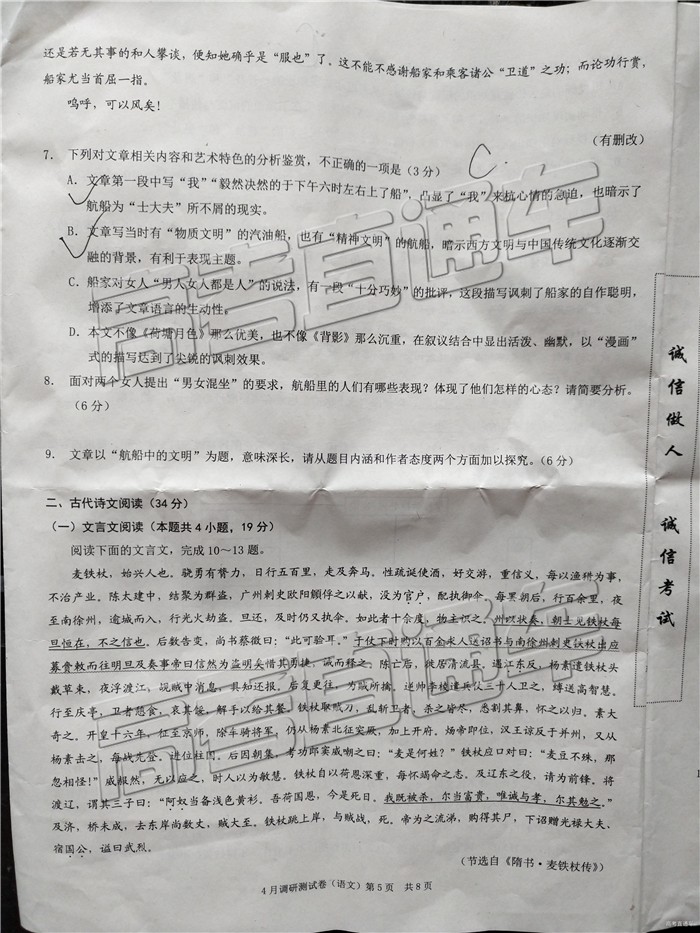 还是若无其事的和人攀谈，便知她确乎是“服也”了。这不能不感谢船家和乘客诸公“卫道”之功；而论功行赏，
船家尤当首屈一指。
呜呼，可以风矣！
（有删改）
7. 下列对文章相关内容和艺术特色的分析鉴赏，不正确的一项是（3分）
C.
A. 文章第一段中写“我”“毅然决然的于下午六时左右上了船”，凸显了“我”来杭心情的急迫，也暗示了
航船为“士大夫”所不屑的现实。
B. 文章写当时有“物质文明”的汽油船，也有“精神文明”的航船，暗示西方文明与中国传统文化逐渐交
融的背景，有利于表现主题。
C. 船家对女人“男人女人都是人”的说法，有一段“十分巧妙”的批评，这段描写讽刺了船家的自作聪明，
增添了文章语言的生动性。
D. 本文不像《荷塘月色》那么优美，也不像《背影》那么沉重，在叙议结合中显出活泼、幽默，以“漫画”
式的描写达到了尖锐的讽刺效果。
8. 面对两个女人提出“男女混坐”的要求，航船里的人们有哪些表现？体现了他们怎样的心态？请简要分析。
（6分）
9. 文章以“航船中的文明”为题，意味深长，请从题目内涵和作者态度两个方面加以探究。（6分）
二、古代诗文阅读（34分）
（一）文言文阅读（本题共4小题，19分）
阅读下面的文言文，完成10～13题。
麦铁杖，始兴人也。骁勇有膂力，日行五百里，走及奔马。性疏诞使酒，好交游，重信义，每以渔猎为事，
不治产业。陈大建中，结聚为群盗，广州刺史欧阳頠俘之以献，没为官户，配执御伞。每罢朝后，行百余里，夜
至南徐州，逾城而入，行光火劫盗。旦还，及时仍又执伞。如此者十余度，物主识之。州以状奏，朝士见铁杖每
旦恒在，不之信也。后数告变，尚书蔡徵曰：“此可验耳。”于仗下时购以百金求人送诏书与南徐州刺史铁杖出应
募赍敕而往明旦及奏事帝曰信然为盗明矣惜其勇捷，诫而释之。陈亡后，徙居清流县。遇江东反，杨素遣铁杖头
戴草束，夜浮渡江，觇贼中消息，具知还报。后复更往，为贼所擒。逆帅李稜遣兵仗三十人卫之，缚送高智慧。
行至庆亭，卫者憩食，哀其馁，解手以给其餐。铁杖取贼刀，乱斩卫者，杀之皆尽，悉割其鼻，怀之以归。素大
奇之。开皇十六年，征至京师，除车骑将军，仍从杨素北征突厥，加上开府。炀帝即位，汉王谅反于并州，又从
杨素击之，每战先登。进位柱国。后因朝集，考功郎窦威嘲之曰：“麦是何姓？”铁杖应口对曰：“麦豆不殊，那
忽相怪！”威赧然，无以应之，时人以为敏慧。铁杖自以荷恩深重，每怀竭命之志。及辽东之役，请为前锋。将
渡辽，谓其三子曰：“阿奴当备浅色黄衫。吾荷国恩，今是死日。我既被杀，尔当富贵，唯诚与孝，尔其勉之。”
及济，桥未成，去东岸尚数丈，贼大至。铁杖跳上岸，与贼战，死。帝为之流涕，购得其尸，下诏赠光禄大夫、
宿国公，谥曰武烈。
（节选自《隋书·麦铁杖传》）
4月调研测试卷（语文）第5页 共8页
诚信做人 诚信考试
高考直通车
高考直通车